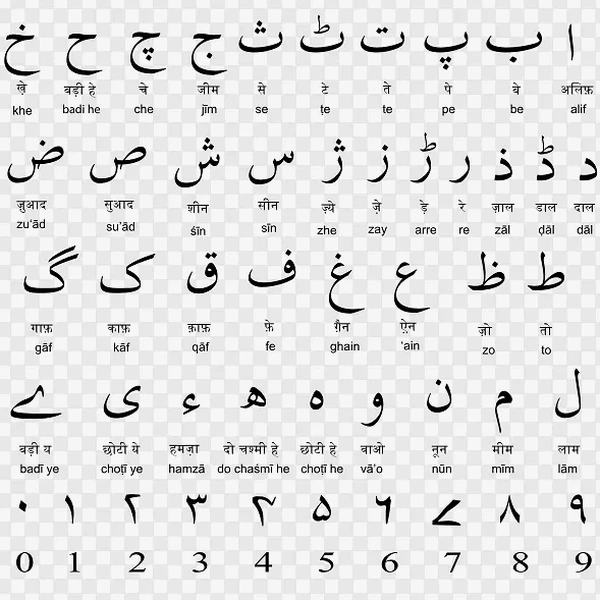 ا ب پ ت ٹ ث ج چ ح خ
अलिफ़ बे पे ते टे से जीम चे बड़ी हे ख़े
khe badi he che jīm se ṭe te pe be alif
د ڈ ذ ر ڑ ز ژ س ش ص ض
ज़ुआद सुआद शीन सीन ज़्ये ज़े ड़े रे ज़ाल डाल दाल
zu'ād su'ād śīn sīn zhe zay arre re zāl ḍāl dāl
ط ظ ع غ ف ق ک گ
गाफ़ काफ़ क़ाफ़ फ़े ग़ैन ऐ़न ज़ो तो
gāf kāf qāf fe ghain 'ain zo to
ل م ن و ہ ھ ء ی ے
बड़ी य छोटी ये हमज़ा दो चश्मी हे छोटी हे वाओ नून मीम लाम
badī ye choṭī ye hamzā do chaśmī he choṭī he vā'o nūn mīm lām
۰ ۱ ۲ ۳ ۴ ۵ ۶ ۷ ۸ ۹
0 1 2 3 4 5 6 7 8 9